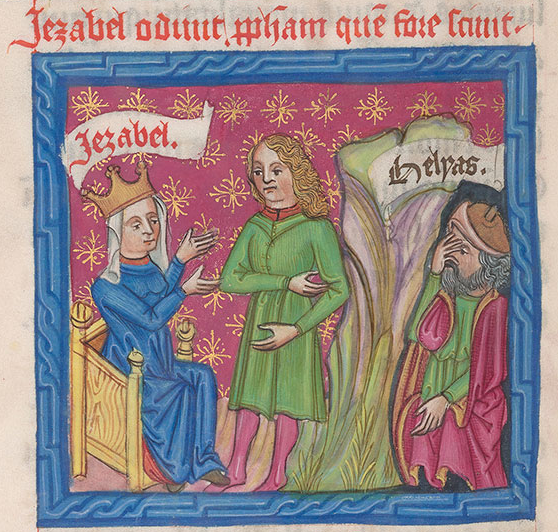 Jezabel odiuit ꝓpħam quē fore sciuit.
Jezabel.
Helyas.